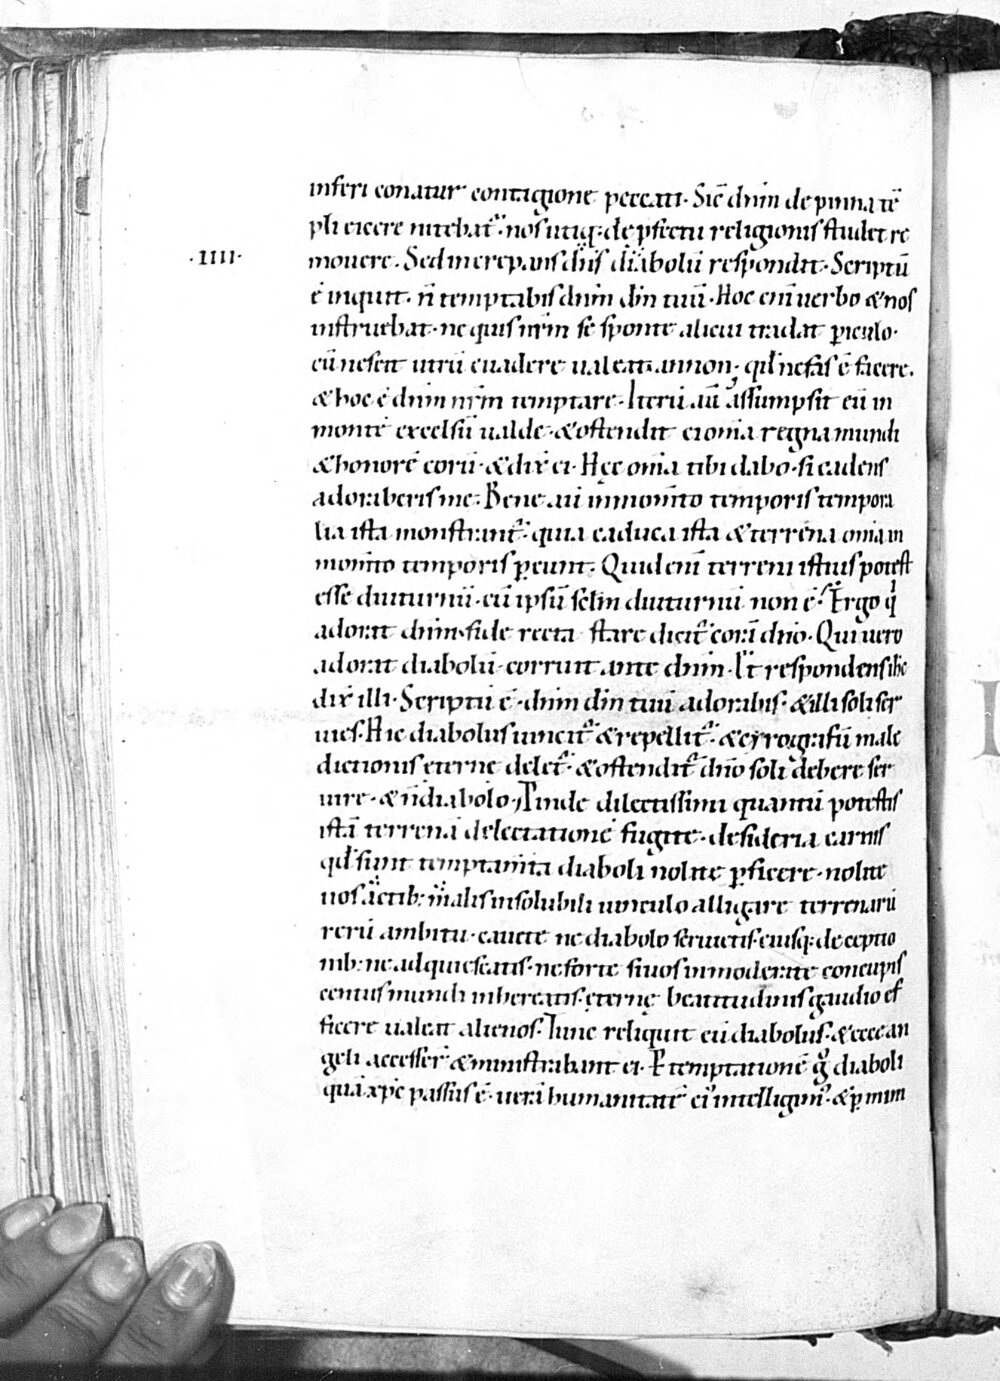 inferi conatur contagione peccati. Sic̄ dn̄m de pinna tē
pli eicere nitebat᷑. nos utiq; de ꝑfectu religionis studet re
.IIII. mouere. Sed increpans dn̄s diabolū respondit. Scriptū
ē inquit. n̄ temptabis dn̄m dm̄ tuū. Hoc eni᷑ uerbo & nos
instruebat. ne quis nr̄m se sponte alicui tradat ꝑiculo.
cū nescit utrū euadere ualeat. annon. qd̄ nefas ē facere.
& hoc ē dn̄m nr̄m temptare. Iterū aū assumpsit eū in
montē excelsū ualde. & ostendit ei om̄ia regna mundi
& honorē eorū. & dix̄ ei. Hęc om̄ia tibi dabo. si cadens
adoraberis me. Bene aū in mom̄to temporis tempora
lia ista monstrant᷑. quia caduca ista & terrena om̄ia in
mom̄to temporis ꝑeunt. Quid eni᷑ terreni istius potest
esse diuturnū. cū ipsū sc̄lm diuturnū non ē. Ergo q̄
adorat dn̄m. fide recta stare dicit᷑ corā dn̄o. Qui uero
adorat diabolū. corruit ante dn̄m. Et respondens ih̄c
dix̄ illi. Scriptū ē. dn̄m dm̄ tuū adorabis. & illi soli ser
uies. Hic diabolus uincit᷑ & repellit᷑. & cyrografū male
dictionis eterne delet᷑. & ostendit᷑ dn̄o soli debere ser
uire. & n̄ diabolo. Proinde dilectissimi quantū potestis
istā terrenā delectationē fugite. desideria carnis
qd̄ sunt temptam̄ta diaboli nolite ꝑficere. nolite
uos actib; malis insolubili uinculo alligare terrenarū
rerū ambitu. cauete ne diabolo seruietis. eiusq; deceptio
nib; ne adquiescatis. ne forte si uos inmoderate concupis
centiis mundi inhereatis. eternę beatitudinis gaudio ef
ficere ualeat alienos. Tunc reliquit eū diabolus. & ecce an
geli accesser̄ & ministrabant ei. P temptationē g̊ diaboli
quā xp̄c passus ē. uerā humanitatē ei᷑ intelligim᷑. & ꝑ mini